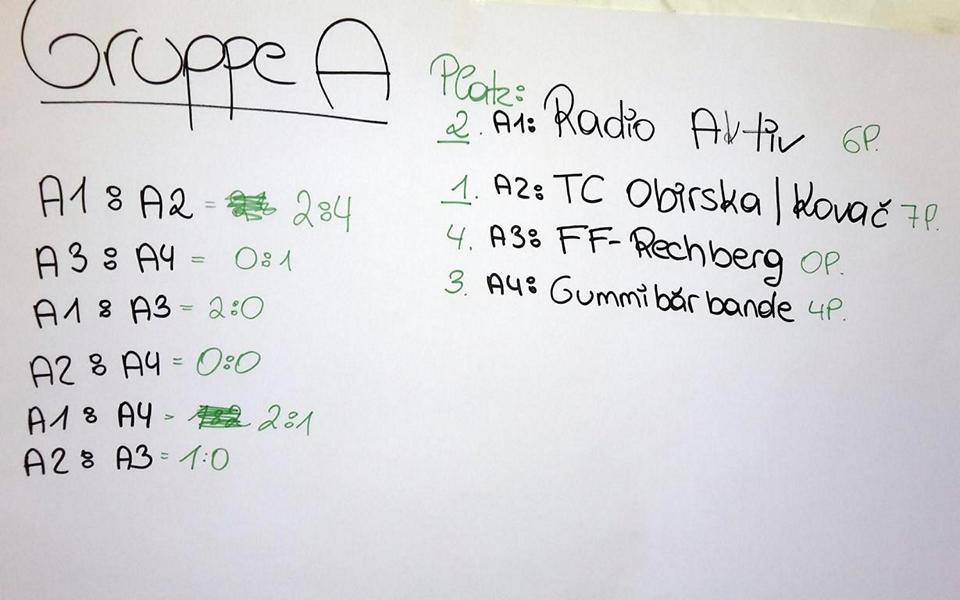 Gruppe A
A1 : A2 = 2:4
A3 : A4 = 0:1
A1 : A3 = 2:0
A2 : A4 = 0:0
A1 : A4 = 2:1
A2 : A3 = 1:0
Platz:
2. A1: Radio Aktiv 6P.
1. A2: TC Obirska | Kovač 7P.
4. A3: FF-Rechberg 0P.
3. A4: Gummibärbande 4P.